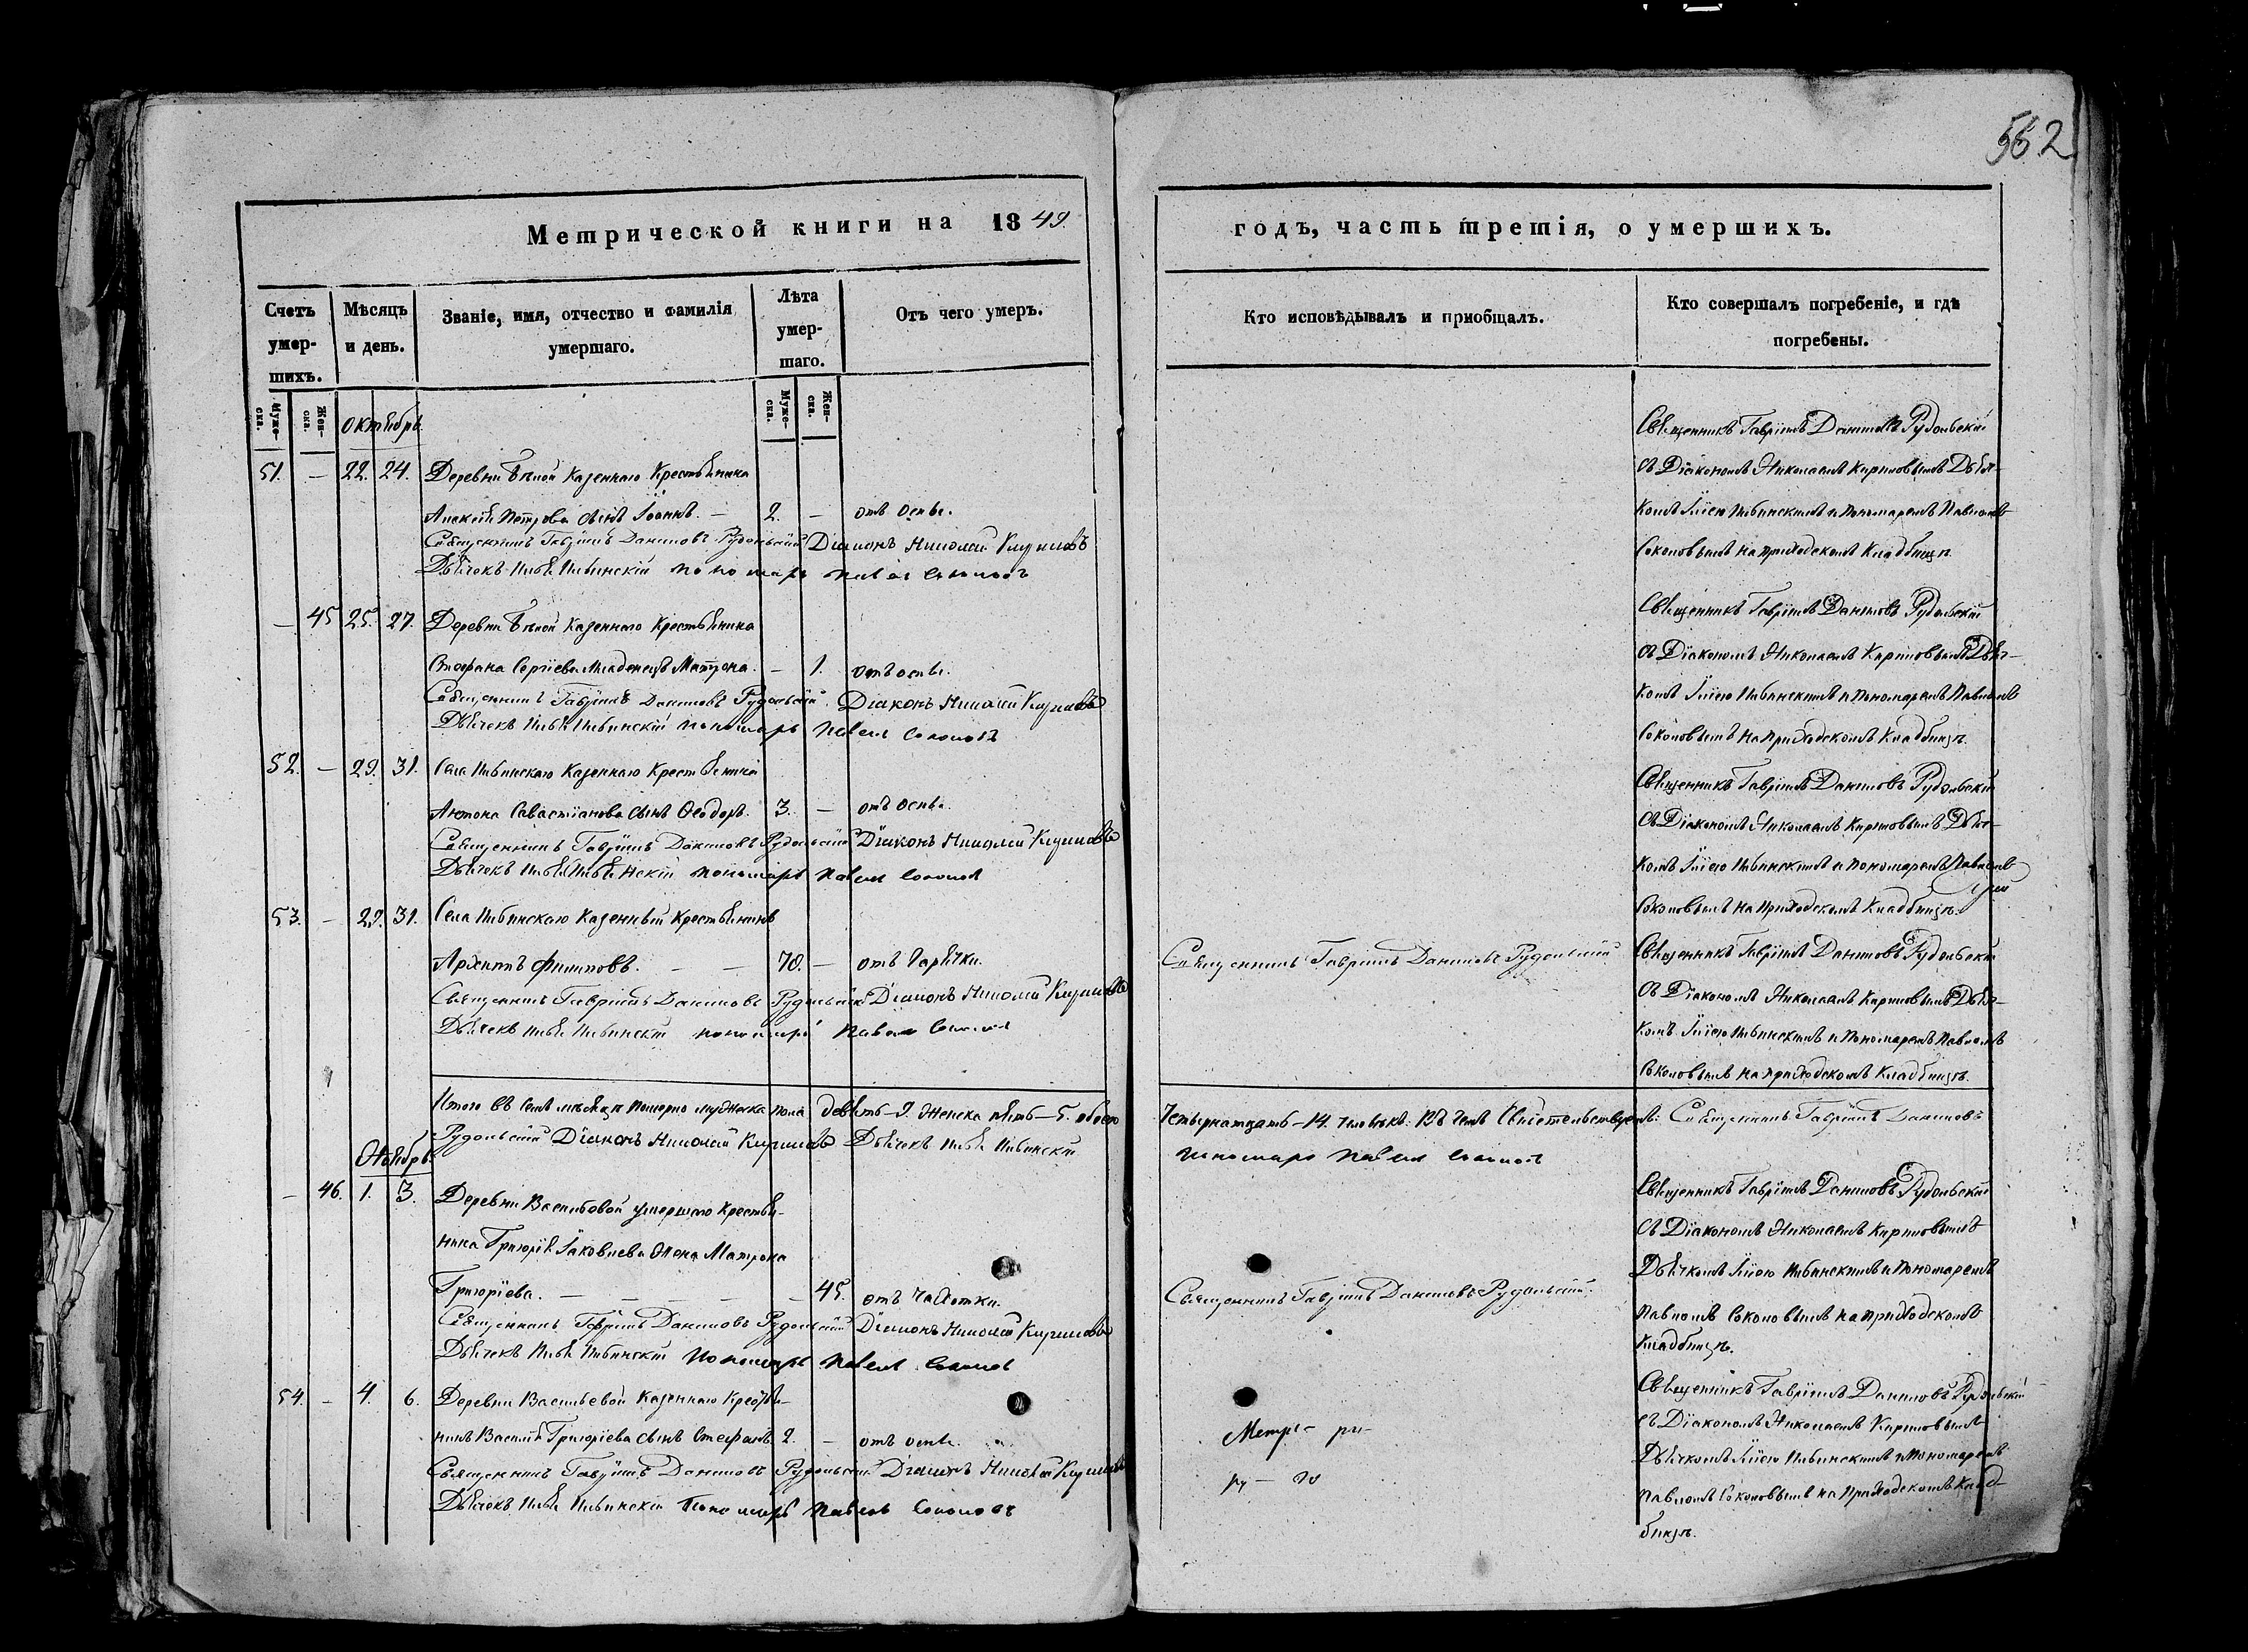 562
Метрической книги на 1849.
годъ, часть третія, о умершихъ.
Счетъ умер-шихъ.
Мѣсяцъ и день.
Званіе, имя, отчество и фамилія умершаго.
Лѣта умер-шаго.
Отъ чего умеръ.
Кто исповѣдывалъ и приобщалъ.
Кто совершалъ погребеніе, и гдѣ погребены.
Муже-ска.
Жен-ска.
Октябрь.
Муже-ска.
Жен-ска.
51. — 22. 24. Деревни Казеннаго Крестьянина
Алексѣя Петрова сынъ Іоаннъ. — 2. — отъ оспы.
Священникъ Гавріилъ Даниловъ Рудольскій Діаконъ Николай Кириловъ
Дьячекъ Илья Ильинскій пономарь Павелъ Соколовъ
Священникъ Гавріилъ Даниловъ Рудольскій
съ Діакономъ Николаемъ Кириловымъ Дьяч-
комъ Иліею Ильинскимъ и Пономаремъ Павломъ
Соколовымъ на приходскомъ Кладбищѣ.
— 45 25. 27. Деревни Казеннаго Крестьянина
Стефана Сергіева младенецъ Матрона. — 1. отъ оспы.
Священникъ Гавріилъ Даниловъ Рудольскій. Діаконъ Николай Кириловъ
Дьячекъ Илья Ильинскій пономарь Павелъ Соколовъ
Священникъ Гавріилъ Даниловъ Рудольскій
съ Діакономъ Николаемъ Кириловымъ Дьяч-
комъ Иліею Ильинскимъ и Пономаремъ Павломъ
Соколовымъ на приходскомъ Кладбищѣ.
52. — 29. 31. Села Ильинскаго Казеннаго Крестьянина
Антона Савастіанова сынъ Ѳеодоръ. 3. — отъ оспы.
Священникъ Гавріилъ Даниловъ Рудольскій Діаконъ Николай Кириловъ
Дьячекъ Илья Ильинскій пономарь Павелъ Соколовъ
Священникъ Гавріилъ Даниловъ Рудольскій
съ Діакономъ Николаемъ Кириловымъ Дьяч-
комъ Иліею Ильинскимъ и пономаремъ Павломъ
Соколовымъ на Приходскомъ Кладбищѣ.
53. — 29. 31. Села Ильинскаго Казенный Крестьянинъ
Архипъ Филиповъ. — — 70. — отъ Горячки.
Священникъ Гавріилъ Даниловъ Рудольскій Діаконъ Николай Кириловъ
Дьячекъ Илья Ильинскій пономарь Павелъ Соколовъ
Священникъ Гавріилъ Даниловъ Рудольскій
Священникъ Гавріилъ Даниловъ Рудольскій
съ Діакономъ Николаемъ Кириловымъ Дьяч-
комъ Иліею Ильинскимъ и Пономаремъ Павломъ
Соколовымъ на приходскомъ Кладбищѣ.
Итого въ семъ мѣсяцѣ померло мужеска пола девять — 9. Женска пять — 5. обоего
Четырнатцать — 14. человѣкъ: Въ чемъ свидѣтельствуемъ: Священникъ Гавріилъ Даниловъ
Рудольскій Діаконъ Николай Кириловъ Дьячекъ Илья Ильинскій
пономарь Павелъ Соколовъ
Ноябрь.
— 46. 1. 3. Деревни Васильевой умершаго крестья-
нина Григорія Іаковлева жена Матрона
Григоріева. — — — — — 45. отъ чахотки.
Священникъ Гавріилъ Даниловъ Рудольскій Діаконъ Николай Кириловъ
Дьячекъ Илья Ильинскій Пономарь Павелъ Соколовъ
Священникъ Гавріилъ Даниловъ Рудольскій.
Священникъ Гавріилъ Даниловъ Рудольскій
съ Діакономъ Николаемъ Кириловымъ
Дьячкомъ Иліею Ильинскимъ и Пономаремъ
Павломъ Соколовымъ на приходскомъ
Кладбищѣ.
54. — 4. 6. Деревни Васильевой Казеннаго Крестья-
нина Василія Григоріева сынъ Стефанъ. 2. — отъ оспы.
Священникъ Гавріилъ Даниловъ Рудольскій Діаконъ Николай Кириловъ
Дьячекъ Илья Ильинскій Пономарь Павелъ Соколовъ
Священникъ Гавріилъ Даниловъ Рудольскій
съ Діакономъ Николаемъ Кириловымъ
Дьячкомъ Иліею Ильинскимъ и Пономаремъ
Павломъ Соколовымъ на Приходскомъ Клад-
бищѣ.